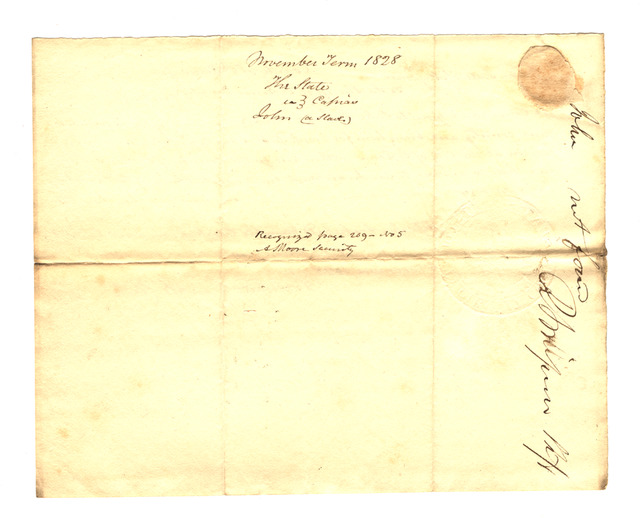 November Term 1828
The State
Capias
John (a Slave)
Recognized page 209 - No 5
A Moore Security
John not found